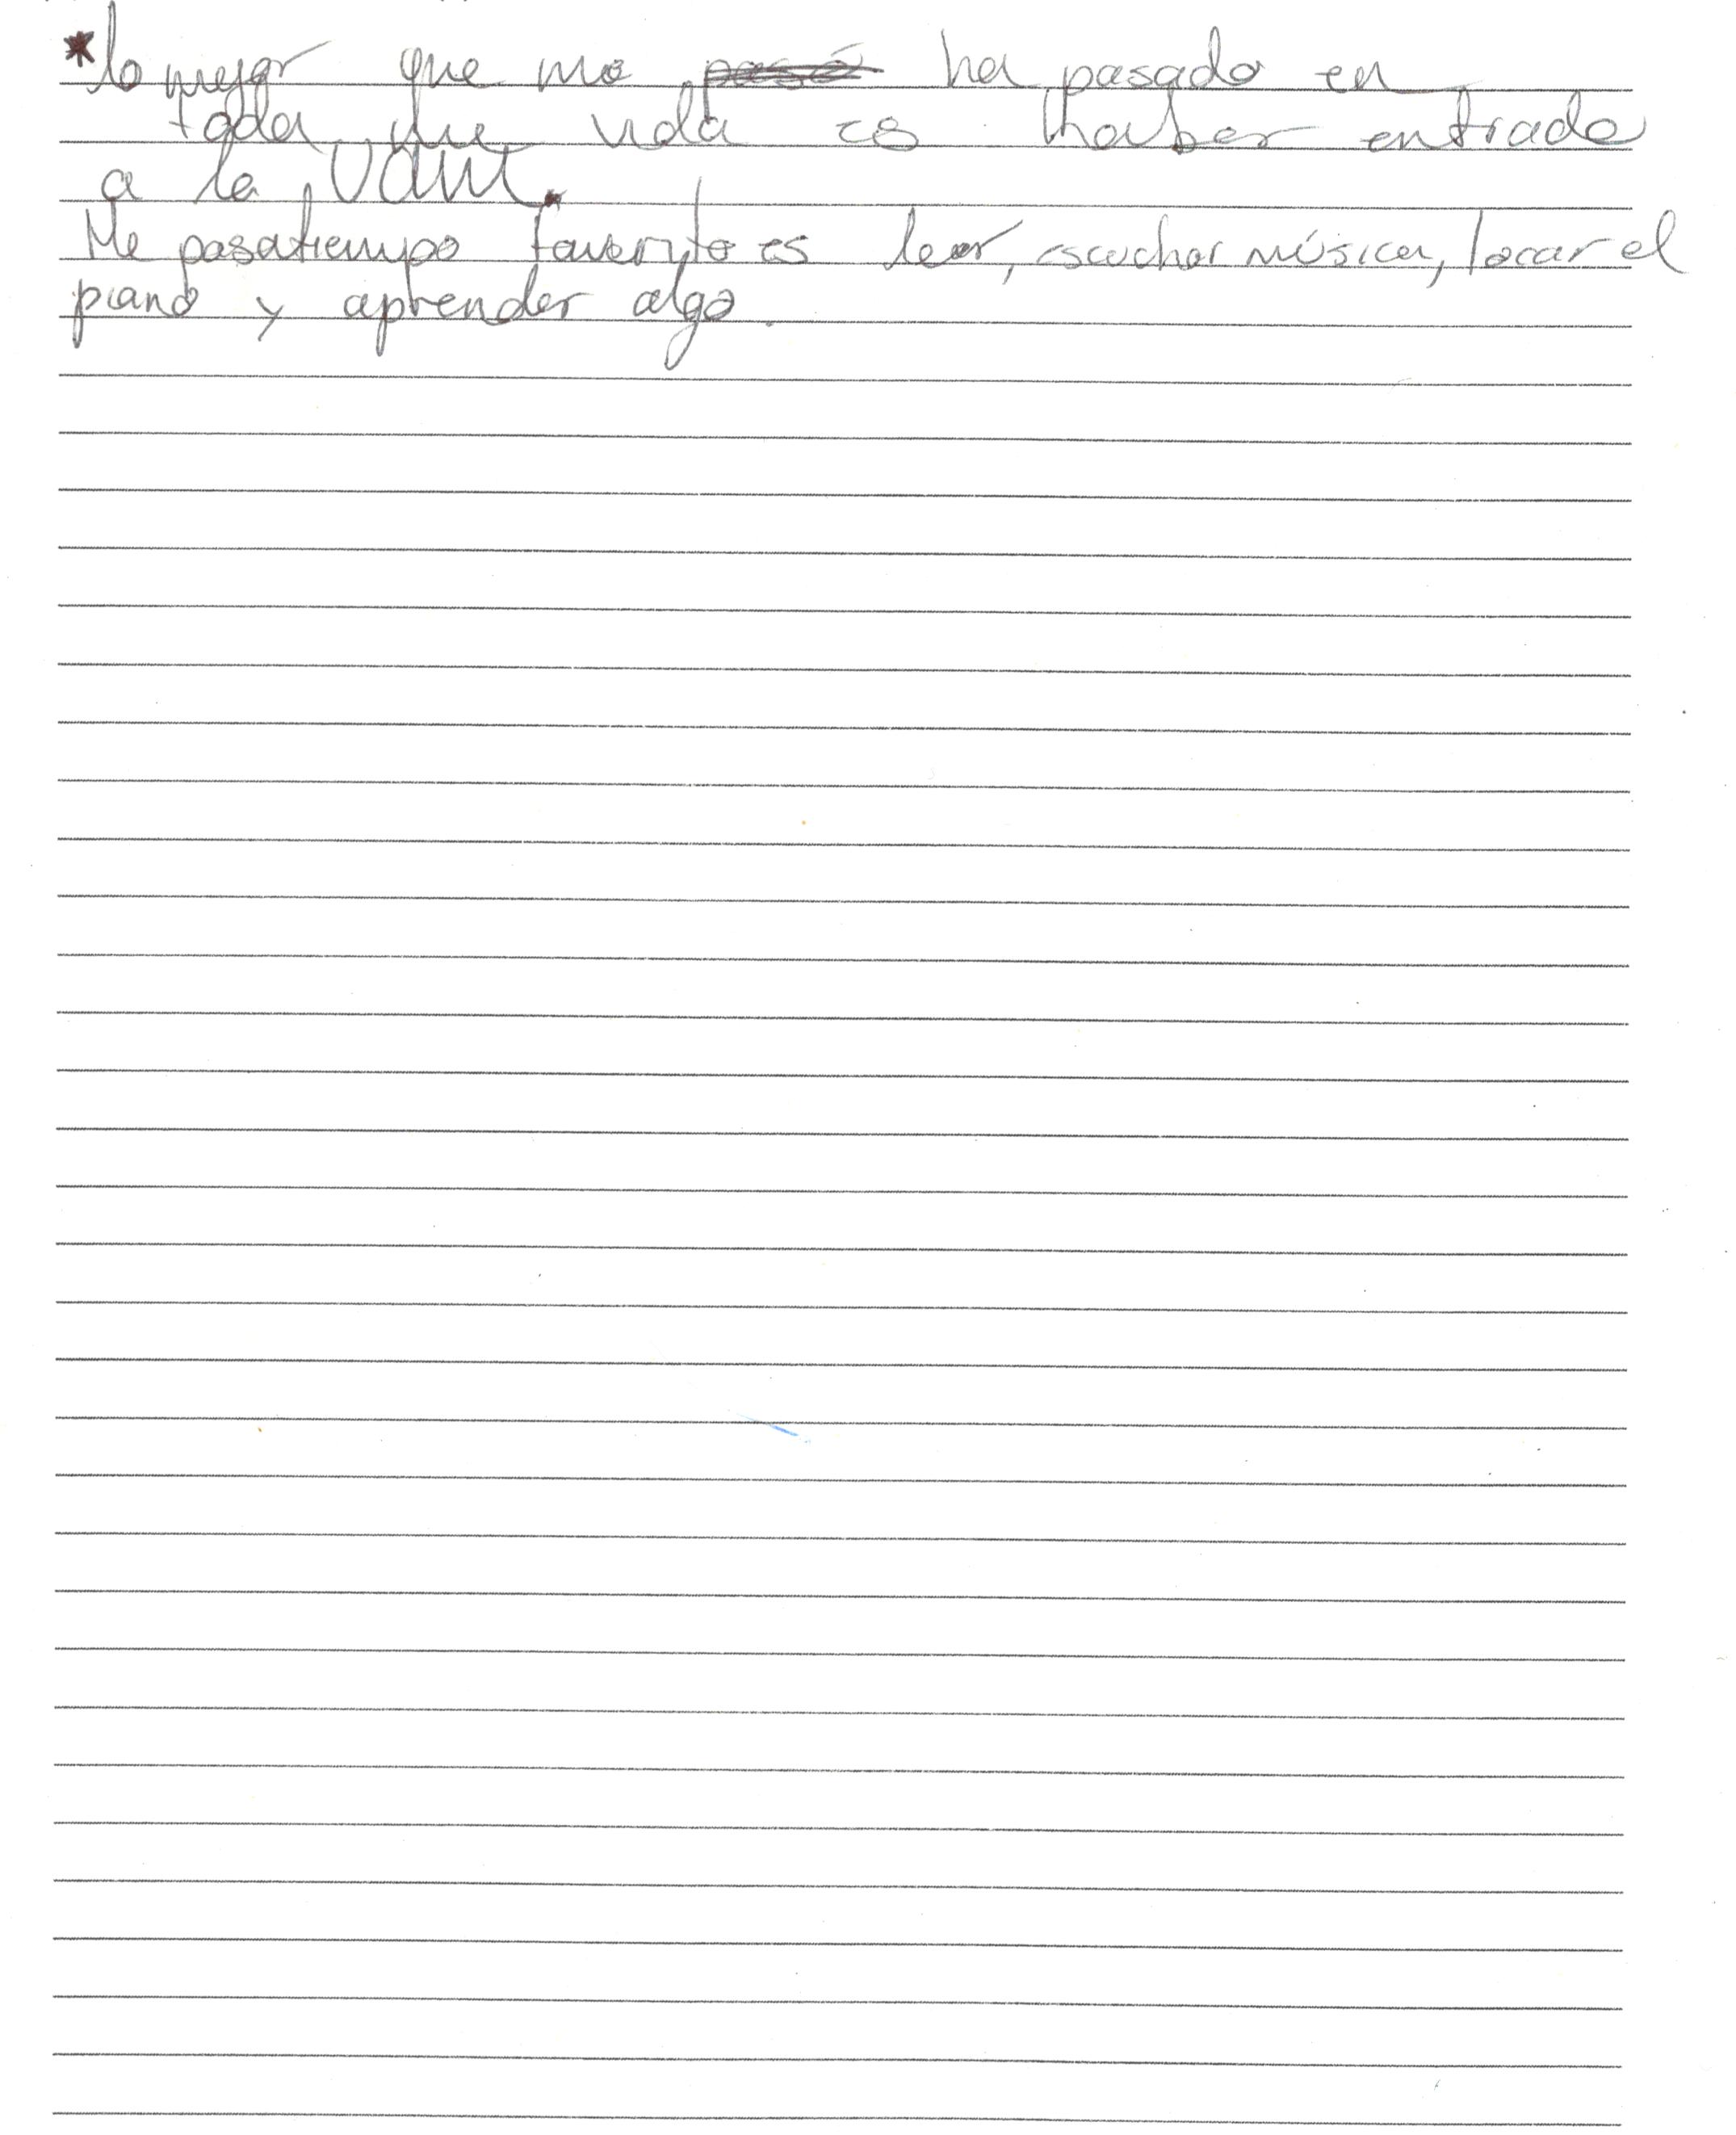 *lo mejor que me pasó ha pasado en
toda mi vida es haber entrado
a la UAM.
Mi pasatiempo favorito es leer, escuchar música, tocar el
piano y aprender algo.